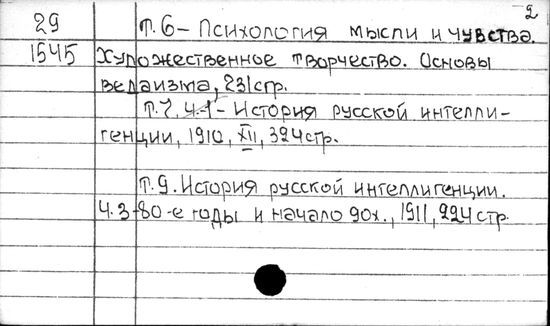 2
29 Т.6 - Психология мысли и чувства.
1545 Художественное творчество. Основы
ведаизма, 231 стр.
Т.7, ч.1 - История русской интелли-
генции, 1910, XII, 324 стр.
Т.9. История русской интеллигенции.
Ч.3 - 80-е годы и начало 90х., 1911, 224 стр.